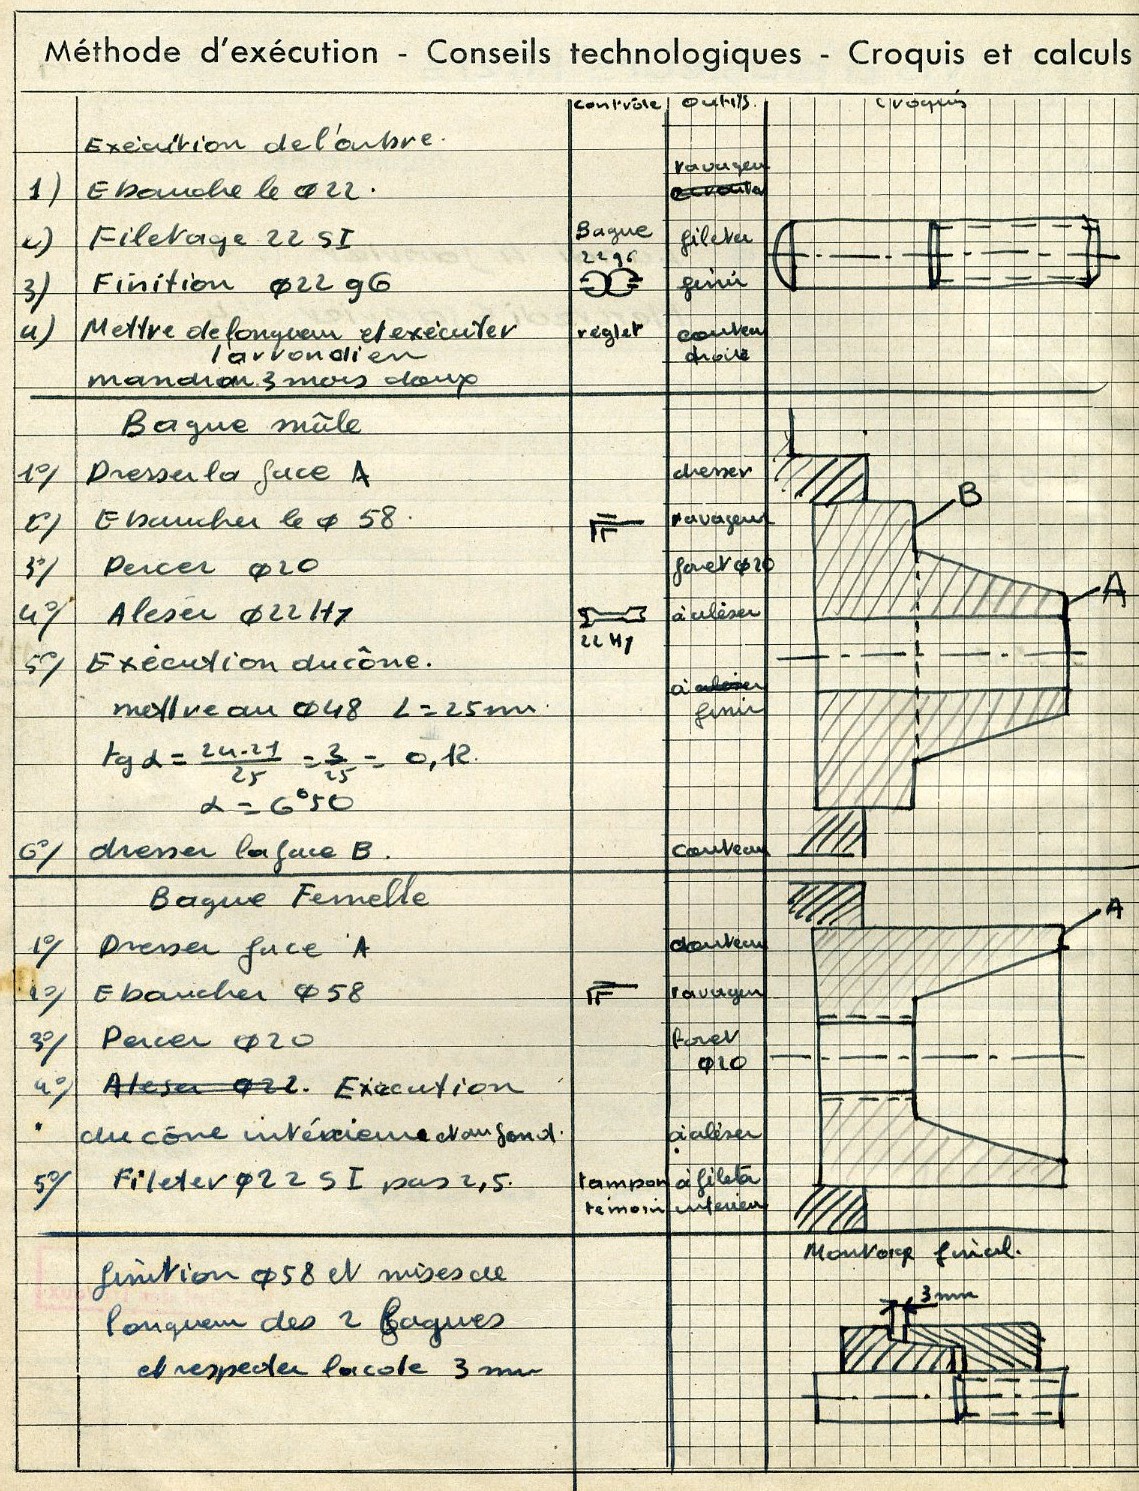 Méthode d'exécution - Conseils technologiques - Croquis et calculs
contrôle outils croquis
Exécution de l'arbre.
1) Ebauche le ø 22. ravageur
2) Filetage 22 SI Bague fileter
22 g6
3) Finition ø22 g6 finir
4) Mettre de longueur et exécuter réglet couteau
l'arrondi en droite
mandrin 3 mors doux
Bague mâle
1°/ Dresser la face A dresser
2°/ Ebaucher le ø 58. ravageur
B
3°/ Percer ø20 foret ø20
A
4°/ Aleser ø22H7 à aléser
22 H7
5°/ Exécution du cône.
à aléser
mettre au ø48 L = 25 mm. finir
tg α = 24-21/25 = 3/25 = 0,12.
α = 6°50
6°/ dresser la face B. couteau
Bague Femelle
A
1°/ Dresser face A couteau
2°/ Ebaucher ø58 ravageur
3°/ Percer ø20 foret
ø20
4°/ Aleser ø22. Exécution
du cône intérieur et au fond. à aléser
5°/ Fileter ø22 SI pas 2,5. tampon à fileter
témoin intérieur
Montage final.
finition ø58 et mises de
3 mm
longueur des 2 bagues
et respecter la cote 3 mm